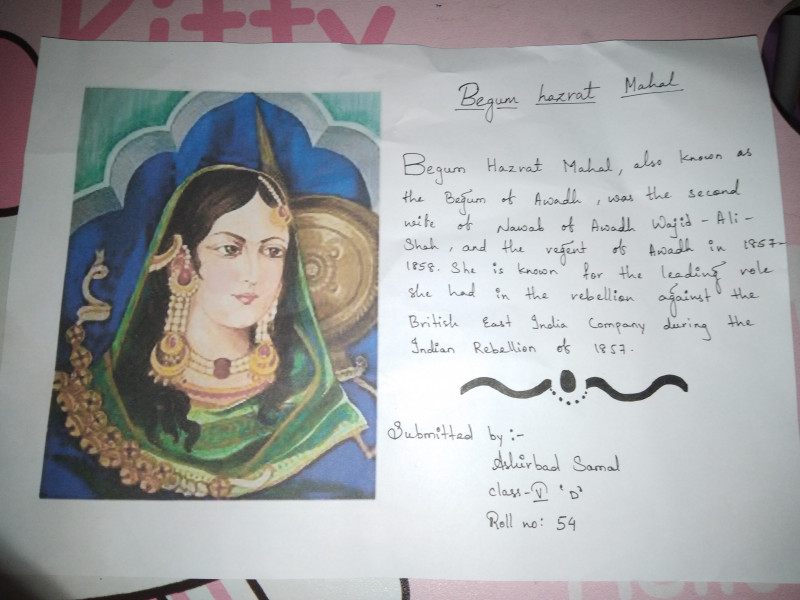 Kitty
Begum hazrat Mahal
Begum Hazrat Mahal, also known as
the Begum of Awadh, was the second
wife of Nawab of Awadh Wajid-Ali-
Shah, and the regent of Awadh in 1857-
1858. She is known for the leading role
she had in the rebellion against the
British East India Company during the
Indian Rebellion of 1857.
Submitted by :-
Ashirbad Samal
class-V 'D'
Roll no: 54